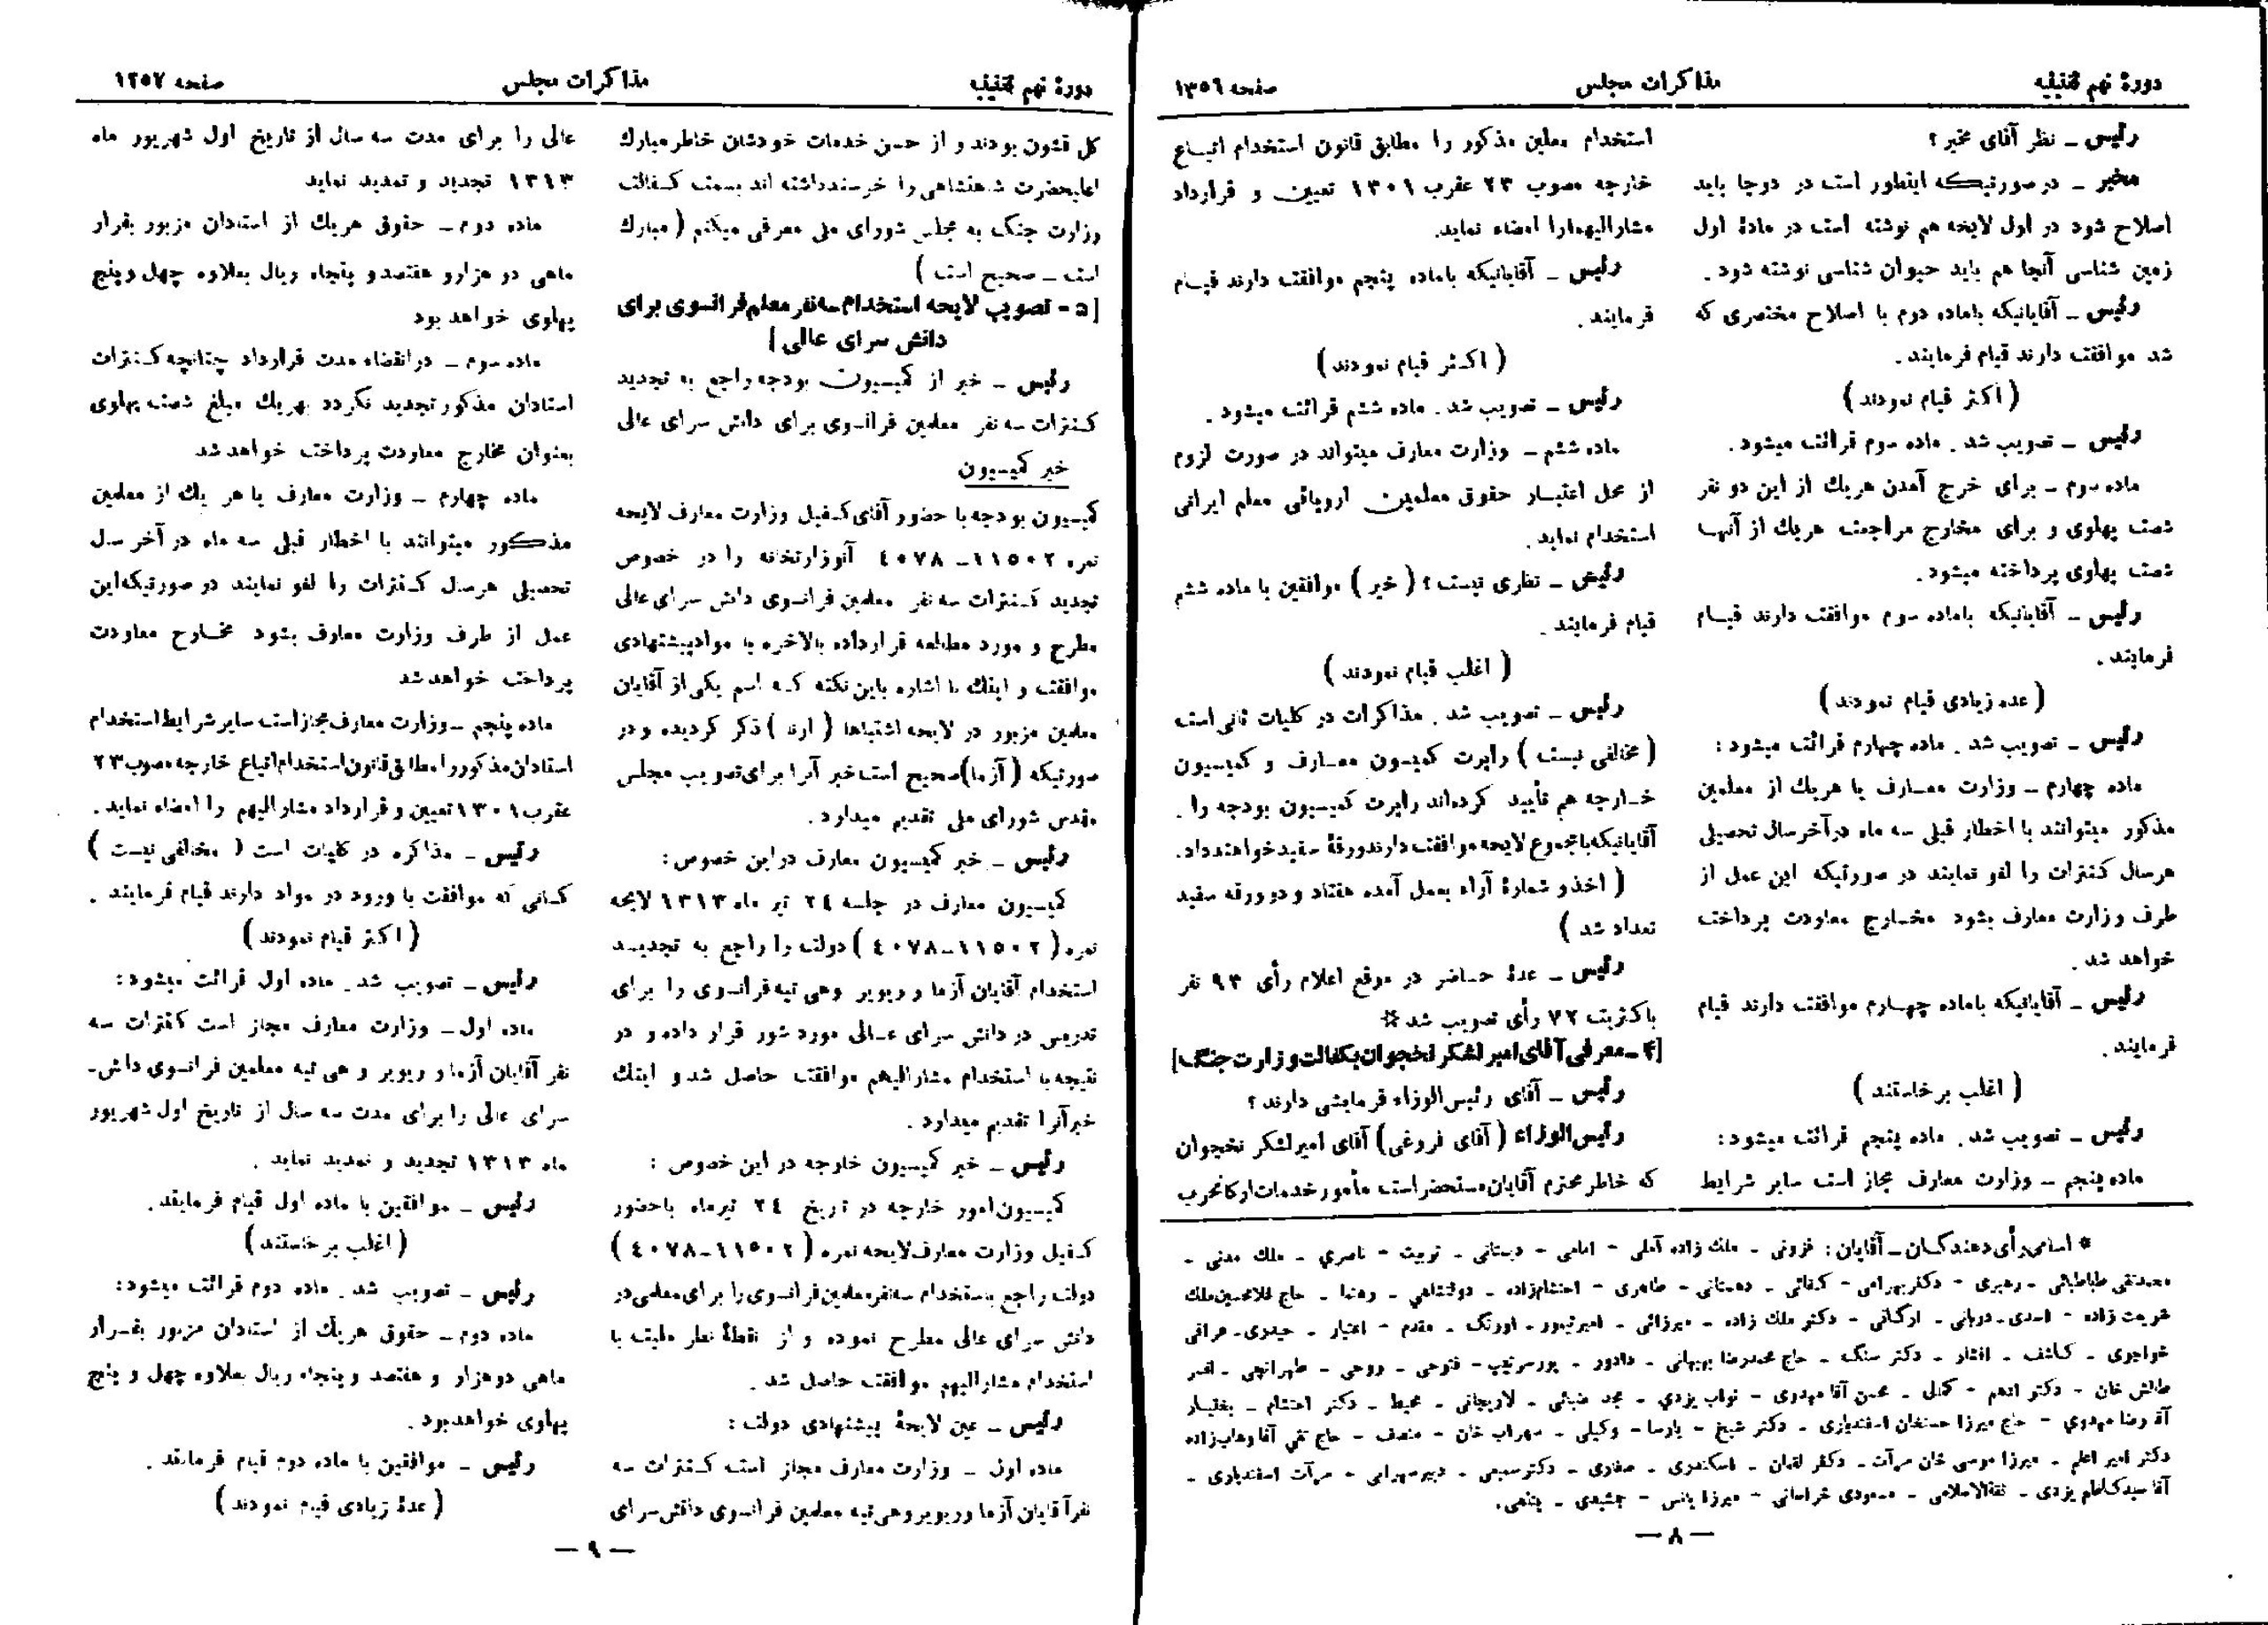 دورهٔ نهم تقنینیه
مذاکرات مجلس
صفحه ۱۳۵۶
رئیس ـ نظر آقای مخبر ؟
مخبر ـ در صورتیکه اینطور است در دوجا باید
اصلاح شود در اول لایحه هم نوشته است در مادهٔ اول
زمین شناسی آنجا هم باید حیوان شناسی نوشته شود .
رئیس ـ آقایانیکه باماده دوم با اصلاح مختصری که
شد موافقت دارند قیام فرمایند .
( اکثر قیام نمودند )
رئیس ـ تصویب شد . ماده سوم قرائت میشود .
ماده سوم ـ برای خرج آمدن هریك از این دو نفر
شصت پهلوی و برای مخارج مراجعت هریك از آنها
شصت پهلوی پرداخته میشود .
رئیس ـ آقایانیکه باماده سوم موافقت دارند قیام
فرمایند .
( عده زیادی قیام نمودند )
رئیس ـ تصویب شد . ماده چهارم قرائت میشود :
ماده چهارم ـ وزارت معارف یا هریك از معلمین
مذکور میتوانند با اخطار قبلی سه ماه درآخرسال تحصیلی
هرسال کنترات را لغو نمایند در صورتیکه این عمل از
طرف وزارت معارف بشود مخارج معاودت پرداخت
خواهد شد .
رئیس ـ آقایانیکه باماده چهارم موافقت دارند قیام
فرمایند .
( اغلب برخاستند )
رئیس ـ تصویب شد . ماده پنجم قرائت میشود :
ماده پنجم ـ وزارت معارف مجاز است سایر شرایط
استخدام معلمین مذکور را مطابق قانون استخدام اتباع
خارجه مصوب ۲۳ عقرب ۱۳۰۱ تعیین و قرارداد
مشارالیهمارا امضاء نماید .
رئیس ـ آقایانیکه باماده پنجم موافقت دارند قیام
فرمایند .
( اکثر قیام نمودند )
رئیس ـ تصویب شد . ماده ششم قرائت میشود .
ماده ششم ـ وزارت معارف میتواند در صورت لزوم
از محل اعتبار حقوق معلمین اروپائی معلم ایرانی
استخدام نماید .
رئیس ـ نظری نیست ؟ ( خیر ) موافقین با ماده ششم
قیام فرمایند .
( اغلب قیام نمودند )
رئیس ـ تصویب شد . مذاکرات در کلیات ثانی است
( مخالفی نیست ) راپرت کمیسیون معارف و کمیسیون
خارجه هم تأیید کرده‌اند راپرت کمیسیون بودجه را .
آقایانیکه بامجموع لایحه موافقت دارند ورقهٔ سفید خواهند داد .
( اخذ و شمارهٔ آراء بعمل آمده هفتاد و دو ورقه سفید
تعداد شد )
رئیس ـ عدهٔ حاضر در موقع اعلام رأی ۹۳ نفر
باکثریت ۷۲ رأی تصویب شد *
[ ۴ ـ معرفی آقای امیر لشکر نخجوان بکفالت وزارت جنگ ]
رئیس ـ آقای رئیس‌الوزراء فرمایشی دارند ؟
رئیس‌الوزراء ( آقای فروغی ) آقای امیر لشکر نخجوان
که خاطر محترم آقایان مستحضراست مأمور خدمات ارکانحرب
* اسامی رأی دهندگان ـ آقایان : قزونی ـ ملك زاده آملی ـ امامی ـ دبستانی ـ تربیت ـ ناصری ـ ملك مدنی ـ
محمدتقی طباطبائی ـ رهبری ـ دکتر بهرامی ـ کفائی ـ دهستانی ـ طاهری ـ احتشام‌زاده ـ دولتشاهی ـ رهنما ـ حاج غلامحسین ملك
شریعت زاده ـ اسدی ـ دربانی ـ ارگانی ـ دکتر ملك زاده ـ میرزائی ـ امیرتیمور ـ اورنگ ـ مقدم ـ اعتبار ـ حیدری ـ عراقی
خواجوی ـ کاشف ـ افشار ـ دکتر سنگ ـ حاج محمدرضا بهبهانی ـ دادور ـ پورسرتیپ ـ فتوحی ـ روحی ـ طهرانچی ـ افسر
طالش خان ـ دکتر ادهم ـ کمالی ـ محسن آقا مهدوی ـ نواب یزدی ـ مجد ضیائی ـ لاریجانی ـ محیط ـ دکتر احتشام ـ بختیار
آقا رضا مهدوی ـ حاج میرزا حسنخان اسفندیاری ـ دکتر شیخ ـ پارسا ـ وکیلی ـ سهراب خان ـ منصف ـ حاج تقی آقا وهاب‌زاده
دکتر امیر اعلم ـ میرزا موسی خان مرآت ـ دکتر لقمان ـ اسکندری ـ صفاری ـ دکتر سمیعی ـ دبیر سهرابی ـ مرآت اسفندیاری ـ
آقا سید کاظم یزدی ـ ثقةالاسلامی ـ مسعودی خراسانی ـ میرزا یانس ـ جمشیدی ـ پناهی .
— ۸ —
دورهٔ نهم تقنینیه
مذاکرات مجلس
صفحه ۱۳۵۷
کل قشون بودند و از حسن خدمات خودشان خاطر مبارك
اعلیحضرت شاهنشاهی را خرسند داشته اند بسمت کفالت
وزارت جنك به مجلس شورای ملی معرفی میکنم ( مبارك
است ـ صحیح است )
[ ۵ ـ تصویب لایحه استخدام سه نفر معلم فرانسوی برای
دانش سرای عالی ]
رئیس ـ خبر از کمیسیون بودجه راجع به تجدید
کنترات سه نفر معلمین فرانسوی برای دانش سرای عالی
خبر کمیسیون
کمیسیون بودجه با حضور آقای کفیل وزارت معارف لایحه
نمره ۱۱۵۰۲ـ ۴۰۷۸ آنوزارتخانه را در خصوص
تجدید کنترات سه نفر معلمین فرانسوی دانش سرای عالی
مطرح و مورد مطالعه قرارداده بالاخره با مواد پیشنهادی
موافقت و اینك با اشاره باین نکته که اسم یکی از آقایان
معلمین مزبور در لایحه اشتباها ( ارند ) ذکر گردیده و در
صورتیکه ( آزما ) صحیح است خبر آنرا برای تصویب مجلس
مقدس شورای ملی تقدیم میدارد .
رئیس ـ خبر کمیسیون معارف دراین خصوص :
کمیسیون معارف در جلسه ۲۴ تیر ماه ۱۳۱۳ لایحه
نمره ( ۱۱۵۰۲ـ۴۰۷۸ ) دولت را راجع به تجدید
استخدام آقایان آزما و ریویر وهی تیه فرانسوی را برای
تدریس در دانش سرای عالی مورد شور قرار داده و در
نتیجه با استخدام مشارالیهم موافقت حاصل شد و اینك
خبر آنرا تقدیم میدارد .
رئیس ـ خبر کمیسیون خارجه در این خصوص :
کمیسیون امور خارجه در تاریخ ۲۴ تیرماه باحضور
کفیل وزارت معارف لایحه نمره ( ۱۱۵۰۲ـ۴۰۷۸ )
دولت راجع باستخدام سه نفر معلمین فرانسوی را برای معلمی در
دانش سرای عالی مطرح نموده و از نقطهٔ نظر ملیت با
استخدام مشارالیهم موافقت حاصل شد .
رئیس ـ عین لایحهٔ پیشنهادی دولت :
ماده اول ـ وزارت معارف مجاز است کنترات سه
نفر آقایان آزما وریویر وهی تیه معلمین فرانسوی دانش سرای
عالی را برای مدت سه سال از تاریخ اول شهریور ماه
۱۳۱۳ تجدید و تمدید نماید
ماده دوم ـ حقوق هریك از استادان مزبور بقرار
ماهی دو هزارو هفتصدو پنجاه ریال بعلاوه چهل وپنج
پهلوی خواهد بود
ماده سوم ـ درانقضاء مدت قرارداد چنانچه کنترات
استادان مذکور تجدید نگردد بهریك مبلغ شصت پهلوی
بعنوان مخارج معاودت پرداخت خواهد شد
ماده چهارم ـ وزارت معارف یا هر یك از معلمین
مذکور میتوانند با اخطار قبلی سه ماه درآخر سال
تحصیلی هرسال کنترات را لغو نمایند در صورتیکه این
عمل از طرف وزارت معارف بشود مخارج معاودت
پرداخت خواهد شد
ماده پنجم ـ وزارت معارف مجاز است سایر شرایط استخدام
استادان مذکور را مطابق قانون استخدام اتباع خارجه مصوب ۲۳
عقرب ۱۳۰۱ تعیین و قرارداد مشارالیهم را امضاء نماید .
رئیس ـ مذاکره در کلیات است ( مخالفی نیست )
کسانی که موافقت با ورود در مواد دارند قیام فرمایند .
( اکثر قیام نمودند )
رئیس ـ تصویب شد . ماده اول قرائت میشود :
ماده اول ـ وزارت معارف مجاز است کنترات سه
نفر آقایان آزما و ریویر و هی تیه معلمین فرانسوی دانش‌ـ
سرای عالی را برای مدت سه سال از تاریخ اول شهریور
ماه ۱۳۱۳ تجدید و تمدید نماید .
رئیس ـ موافقین با ماده اول قیام فرمایند .
( اغلب برخاستند )
رئیس ـ تصویب شد . ماده دوم قرائت میشود :
ماده دوم ـ حقوق هریك از استادان مزبور بقرار
ماهی دوهزار و هفتصد و پنجاه ریال بعلاوه چهل و پنج
پهلوی خواهدبود .
رئیس ـ موافقین با ماده دوم قیام فرمایند .
( عدهٔ زیادی قیام نمودند )
— ۹ —